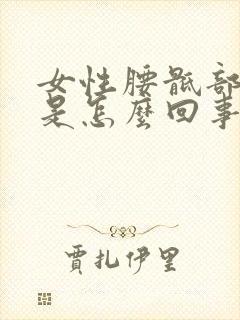 女性腰骶部
是怎麼回事
賈扎伊里